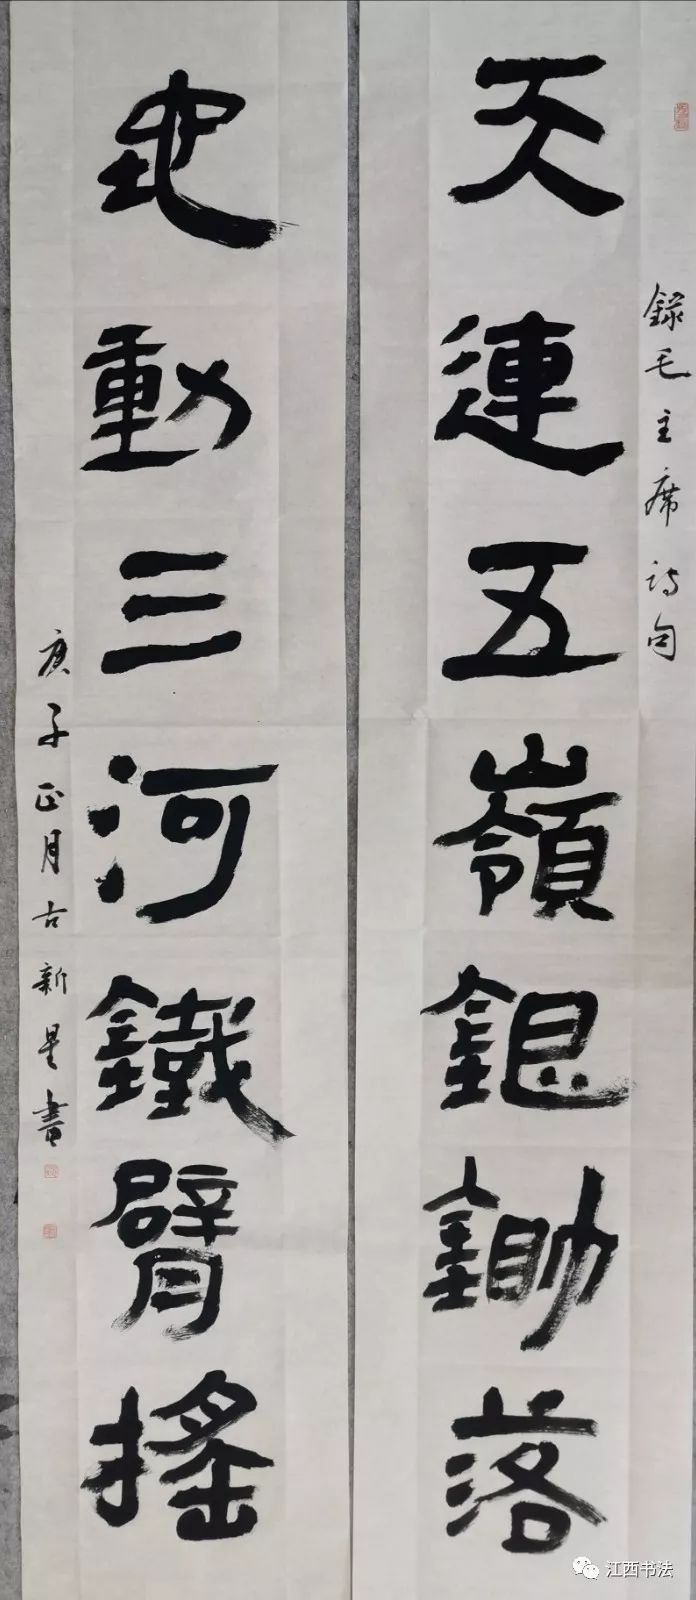 錄毛主席诗句
天連五嶺銀鋤落
地動三河鐵臂搖
庚子正月古新星書
江西书法